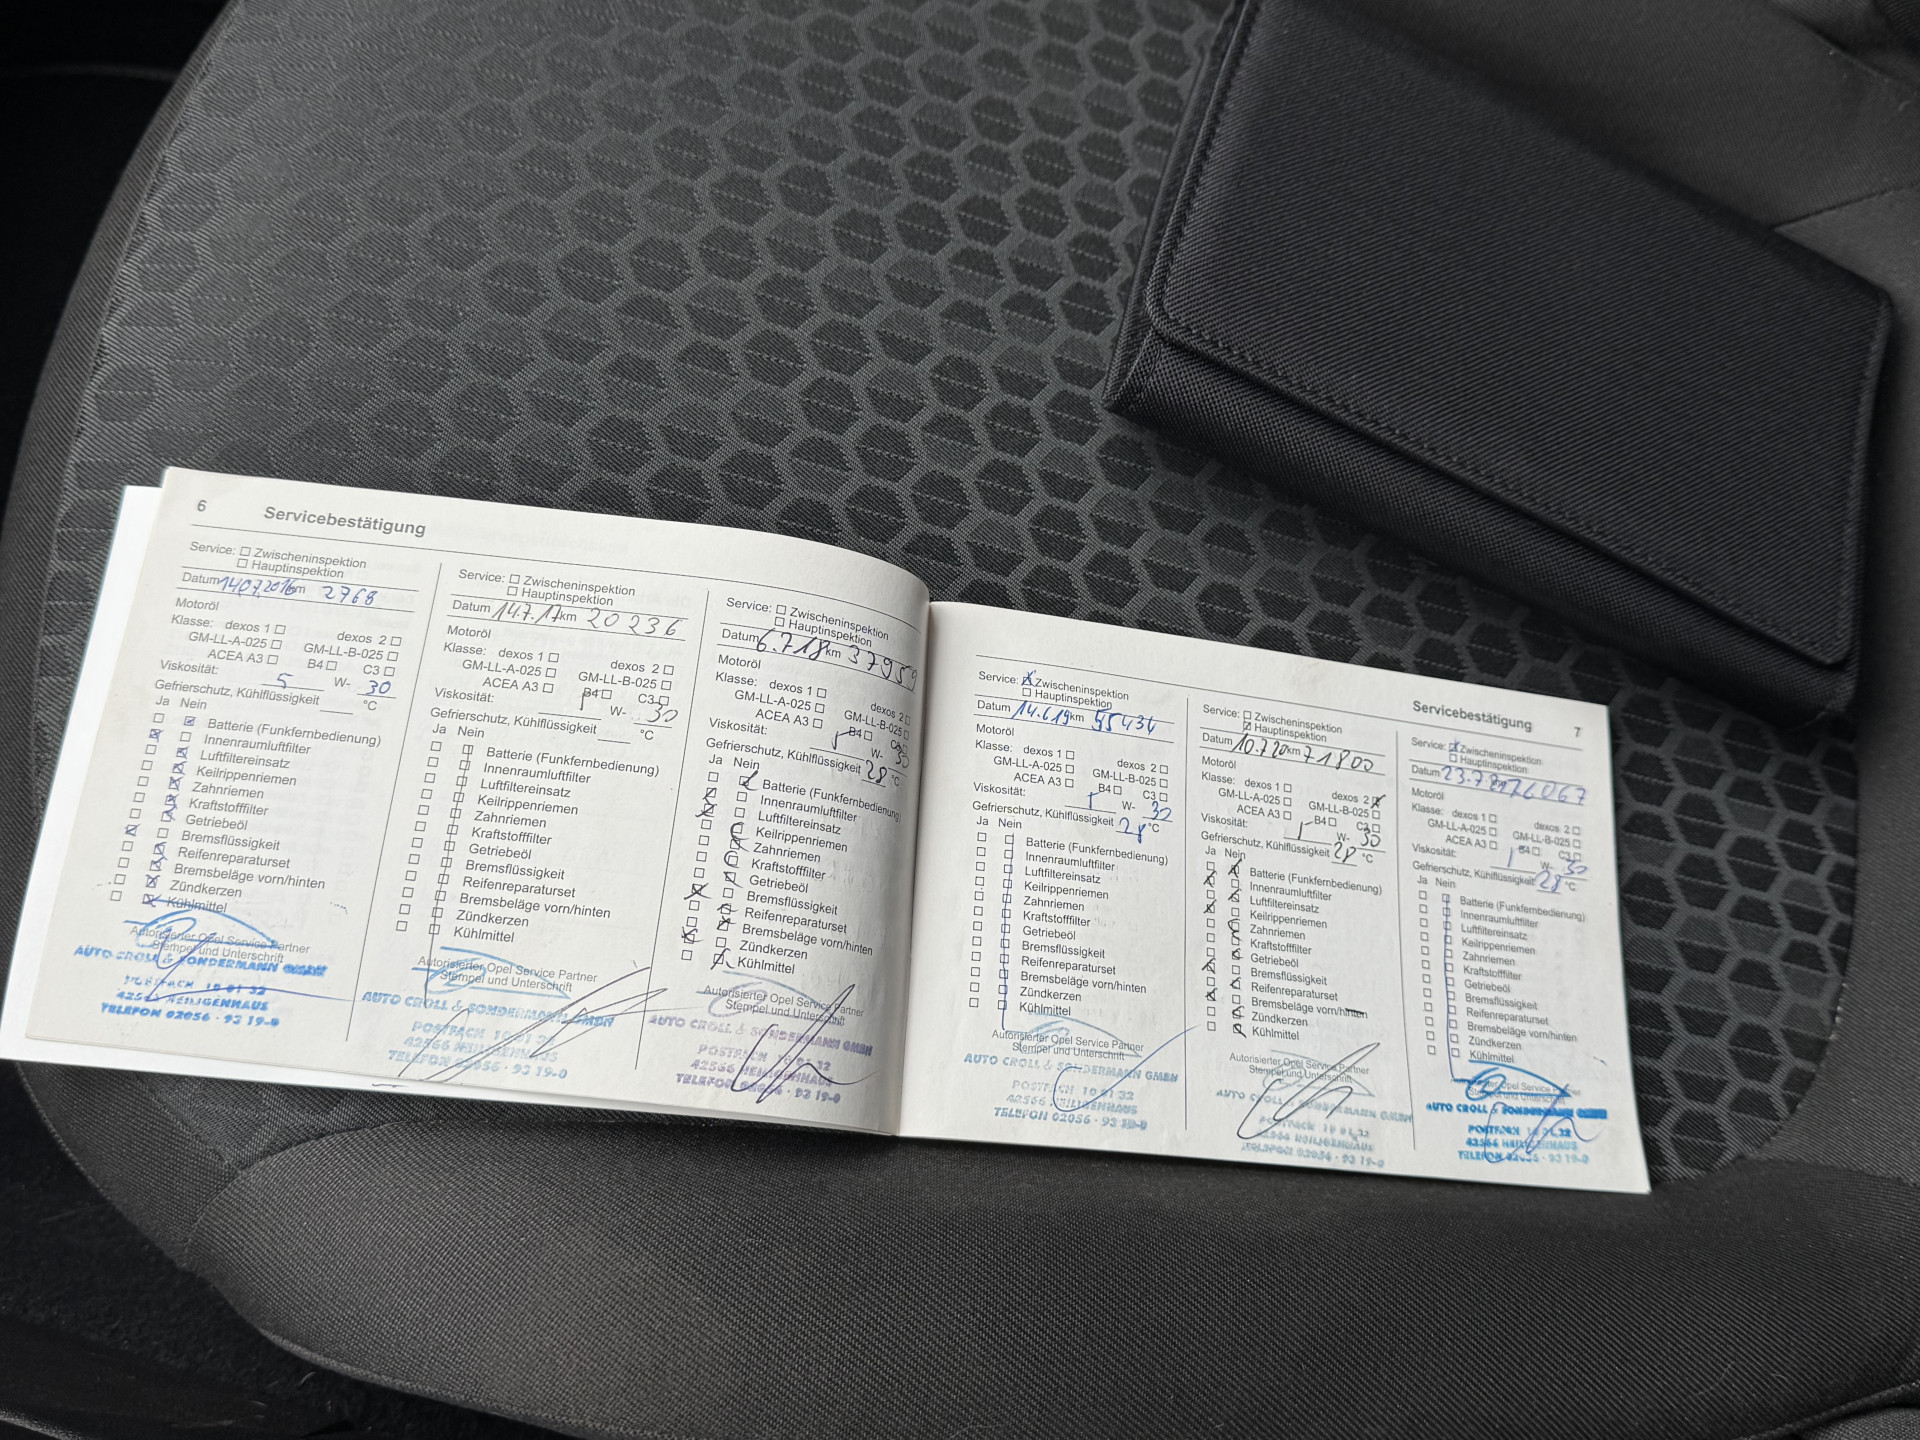 6 Servicebestätigung
Service: Zwischeninspektion
Hauptinspektion
Datum 14.07.2016 km 2768
Motoröl
Klasse: dexos 1 dexos 2
GM-LL-A-025 GM-LL-B-025
ACEA A3 B4 C3
Viskosität: 5 W- 30
Gefrierschutz, Kühlflüssigkeit °C
Ja Nein
Batterie (Funkfernbedienung)
Innenraumluftfilter
Luftfiltereinsatz
Keilrippenriemen
Zahnriemen
Kraftstofffilter
Getriebeöl
Bremsflüssigkeit
Reifenreparaturset
Bremsbeläge vorn/hinten
Zündkerzen
Kühlmittel
Autorisierter Opel Service Partner
Stempel und Unterschrift
AUTO CROLL & SONDERMANN GMBH
POSTFACH 10 01 32
42566 HEILIGENHAUS
TELEFON 02056 · 93 19-0
Service: Zwischeninspektion
Hauptinspektion
Datum 14.7.17 km 20236
Motoröl
Klasse: dexos 1 dexos 2
GM-LL-A-025 GM-LL-B-025
ACEA A3 B4 C3
Viskosität: W- 30
Gefrierschutz, Kühlflüssigkeit °C
Ja Nein
Batterie (Funkfernbedienung)
Innenraumluftfilter
Luftfiltereinsatz
Keilrippenriemen
Zahnriemen
Kraftstofffilter
Getriebeöl
Bremsflüssigkeit
Reifenreparaturset
Bremsbeläge vorn/hinten
Zündkerzen
Kühlmittel
Autorisierter Opel Service Partner
Stempel und Unterschrift
AUTO CROLL & SONDERMANN GMBH
POSTFACH 10 01 32
42566 HEILIGENHAUS
TELEFON 02056 · 93 19-0
Service: Zwischeninspektion
Hauptinspektion
Datum 6.7.18 km 37959
Motoröl
Klasse: dexos 1 dexos 2
GM-LL-A-025 GM-LL-B-025
ACEA A3 B4 C3
Viskosität: W- 30
Gefrierschutz, Kühlflüssigkeit 28 °C
Ja Nein
Batterie (Funkfernbedienung)
Innenraumluftfilter
Luftfiltereinsatz
Keilrippenriemen
Zahnriemen
Kraftstofffilter
Getriebeöl
Bremsflüssigkeit
Reifenreparaturset
Bremsbeläge vorn/hinten
Zündkerzen
Kühlmittel
Autorisierter Opel Service Partner
Stempel und Unterschrift
AUTO CROLL & SONDERMANN GMBH
POSTFACH 10 01 32
42566 HEILIGENHAUS
TELEFON 02056 · 93 19-0
Servicebestätigung 7
Service: Zwischeninspektion
Hauptinspektion
Datum 14.6.19 km 55434
Motoröl
Klasse: dexos 1 dexos 2
GM-LL-A-025 GM-LL-B-025
ACEA A3 B4 C3
Viskosität: W- 30
Gefrierschutz, Kühlflüssigkeit 28 °C
Ja Nein
Batterie (Funkfernbedienung)
Innenraumluftfilter
Luftfiltereinsatz
Keilrippenriemen
Zahnriemen
Kraftstofffilter
Getriebeöl
Bremsflüssigkeit
Reifenreparaturset
Bremsbeläge vorn/hinten
Zündkerzen
Kühlmittel
Autorisierter Opel Service Partner
Stempel und Unterschrift
AUTO CROLL & SONDERMANN GMBH
POSTFACH 10 01 32
42566 HEILIGENHAUS
TELEFON 02056 · 93 19-0
Service: Zwischeninspektion
Hauptinspektion
Datum 10.7.20 km 71800
Motoröl
Klasse: dexos 1 dexos 2
GM-LL-A-025 GM-LL-B-025
ACEA A3 B4 C3
Viskosität: W- 30
Gefrierschutz, Kühlflüssigkeit 28 °C
Ja Nein
Batterie (Funkfernbedienung)
Innenraumluftfilter
Luftfiltereinsatz
Keilrippenriemen
Zahnriemen
Kraftstofffilter
Getriebeöl
Bremsflüssigkeit
Reifenreparaturset
Bremsbeläge vorn/hinten
Zündkerzen
Kühlmittel
Autorisierter Opel Service Partner
Stempel und Unterschrift
AUTO CROLL & SONDERMANN GMBH
POSTFACH 10 01 32
42566 HEILIGENHAUS
TELEFON 02056 · 93 19-0
Service: Zwischeninspektion
Hauptinspektion
Datum 76067
Motoröl
Klasse: dexos 1 dexos 2
GM-LL-A-025 GM-LL-B-025
ACEA A3 B4 C3
Viskosität: W- 30
Gefrierschutz, Kühlflüssigkeit 28 °C
Ja Nein
Batterie (Funkfernbedienung)
Innenraumluftfilter
Luftfiltereinsatz
Keilrippenriemen
Zahnriemen
Kraftstofffilter
Getriebeöl
Bremsflüssigkeit
Reifenreparaturset
Bremsbeläge vorn/hinten
Zündkerzen
Kühlmittel
Autorisierter Opel Service Partner
Stempel und Unterschrift
AUTO CROLL & SONDERMANN GMBH
POSTFACH 10 01 32
42566 HEILIGENHAUS
TELEFON 02056 · 93 19-0